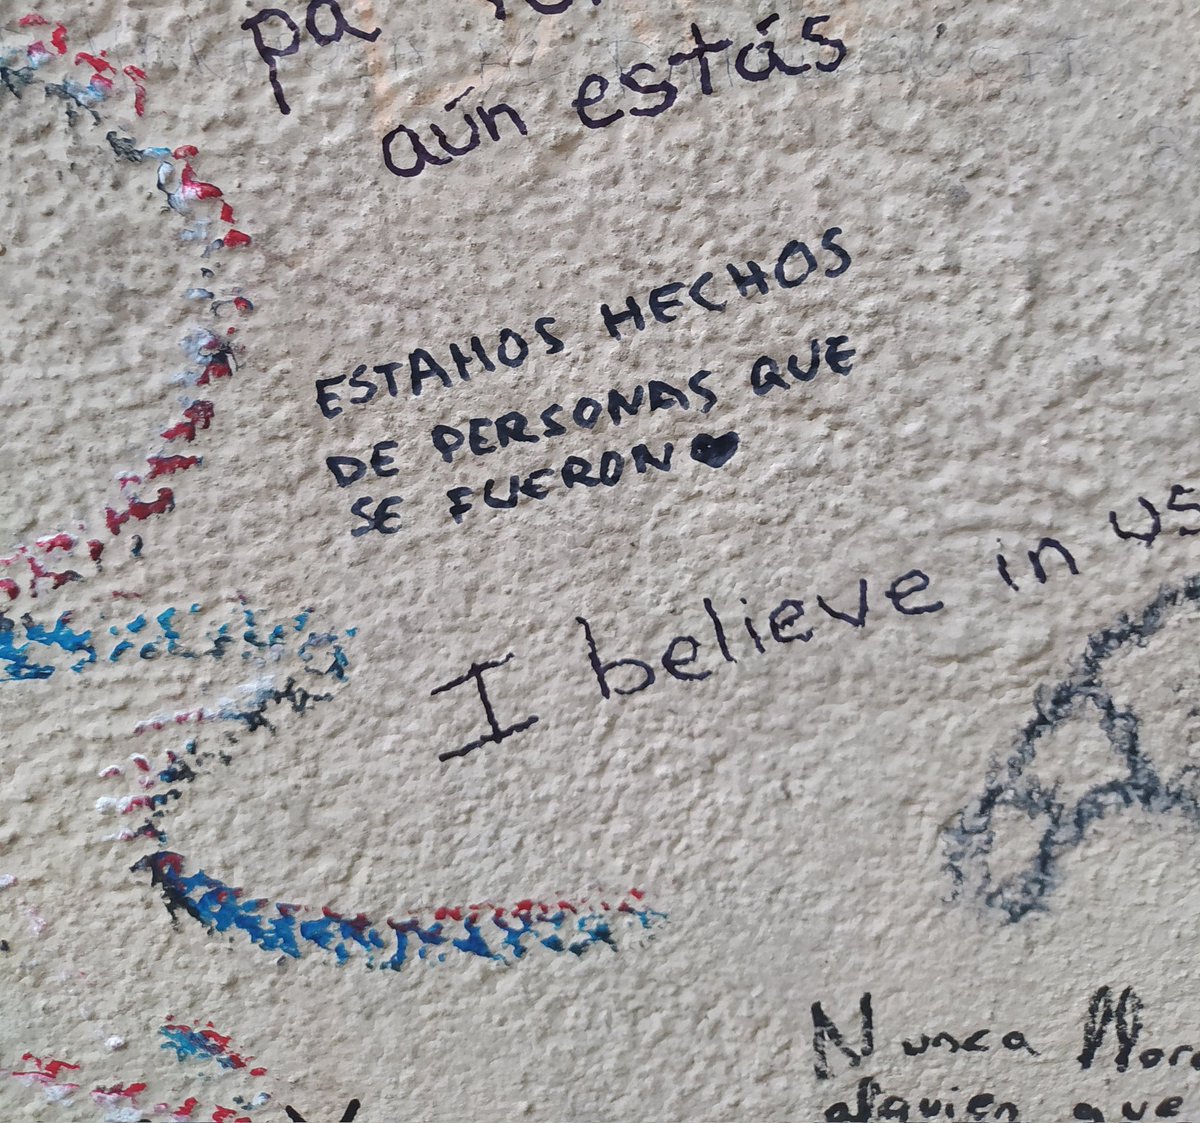 pa
aún estás
ESTAMOS HECHOS
DE PERSONAS QUE
SE FUERON
I believe in us
A
Nunca llor
alguien que